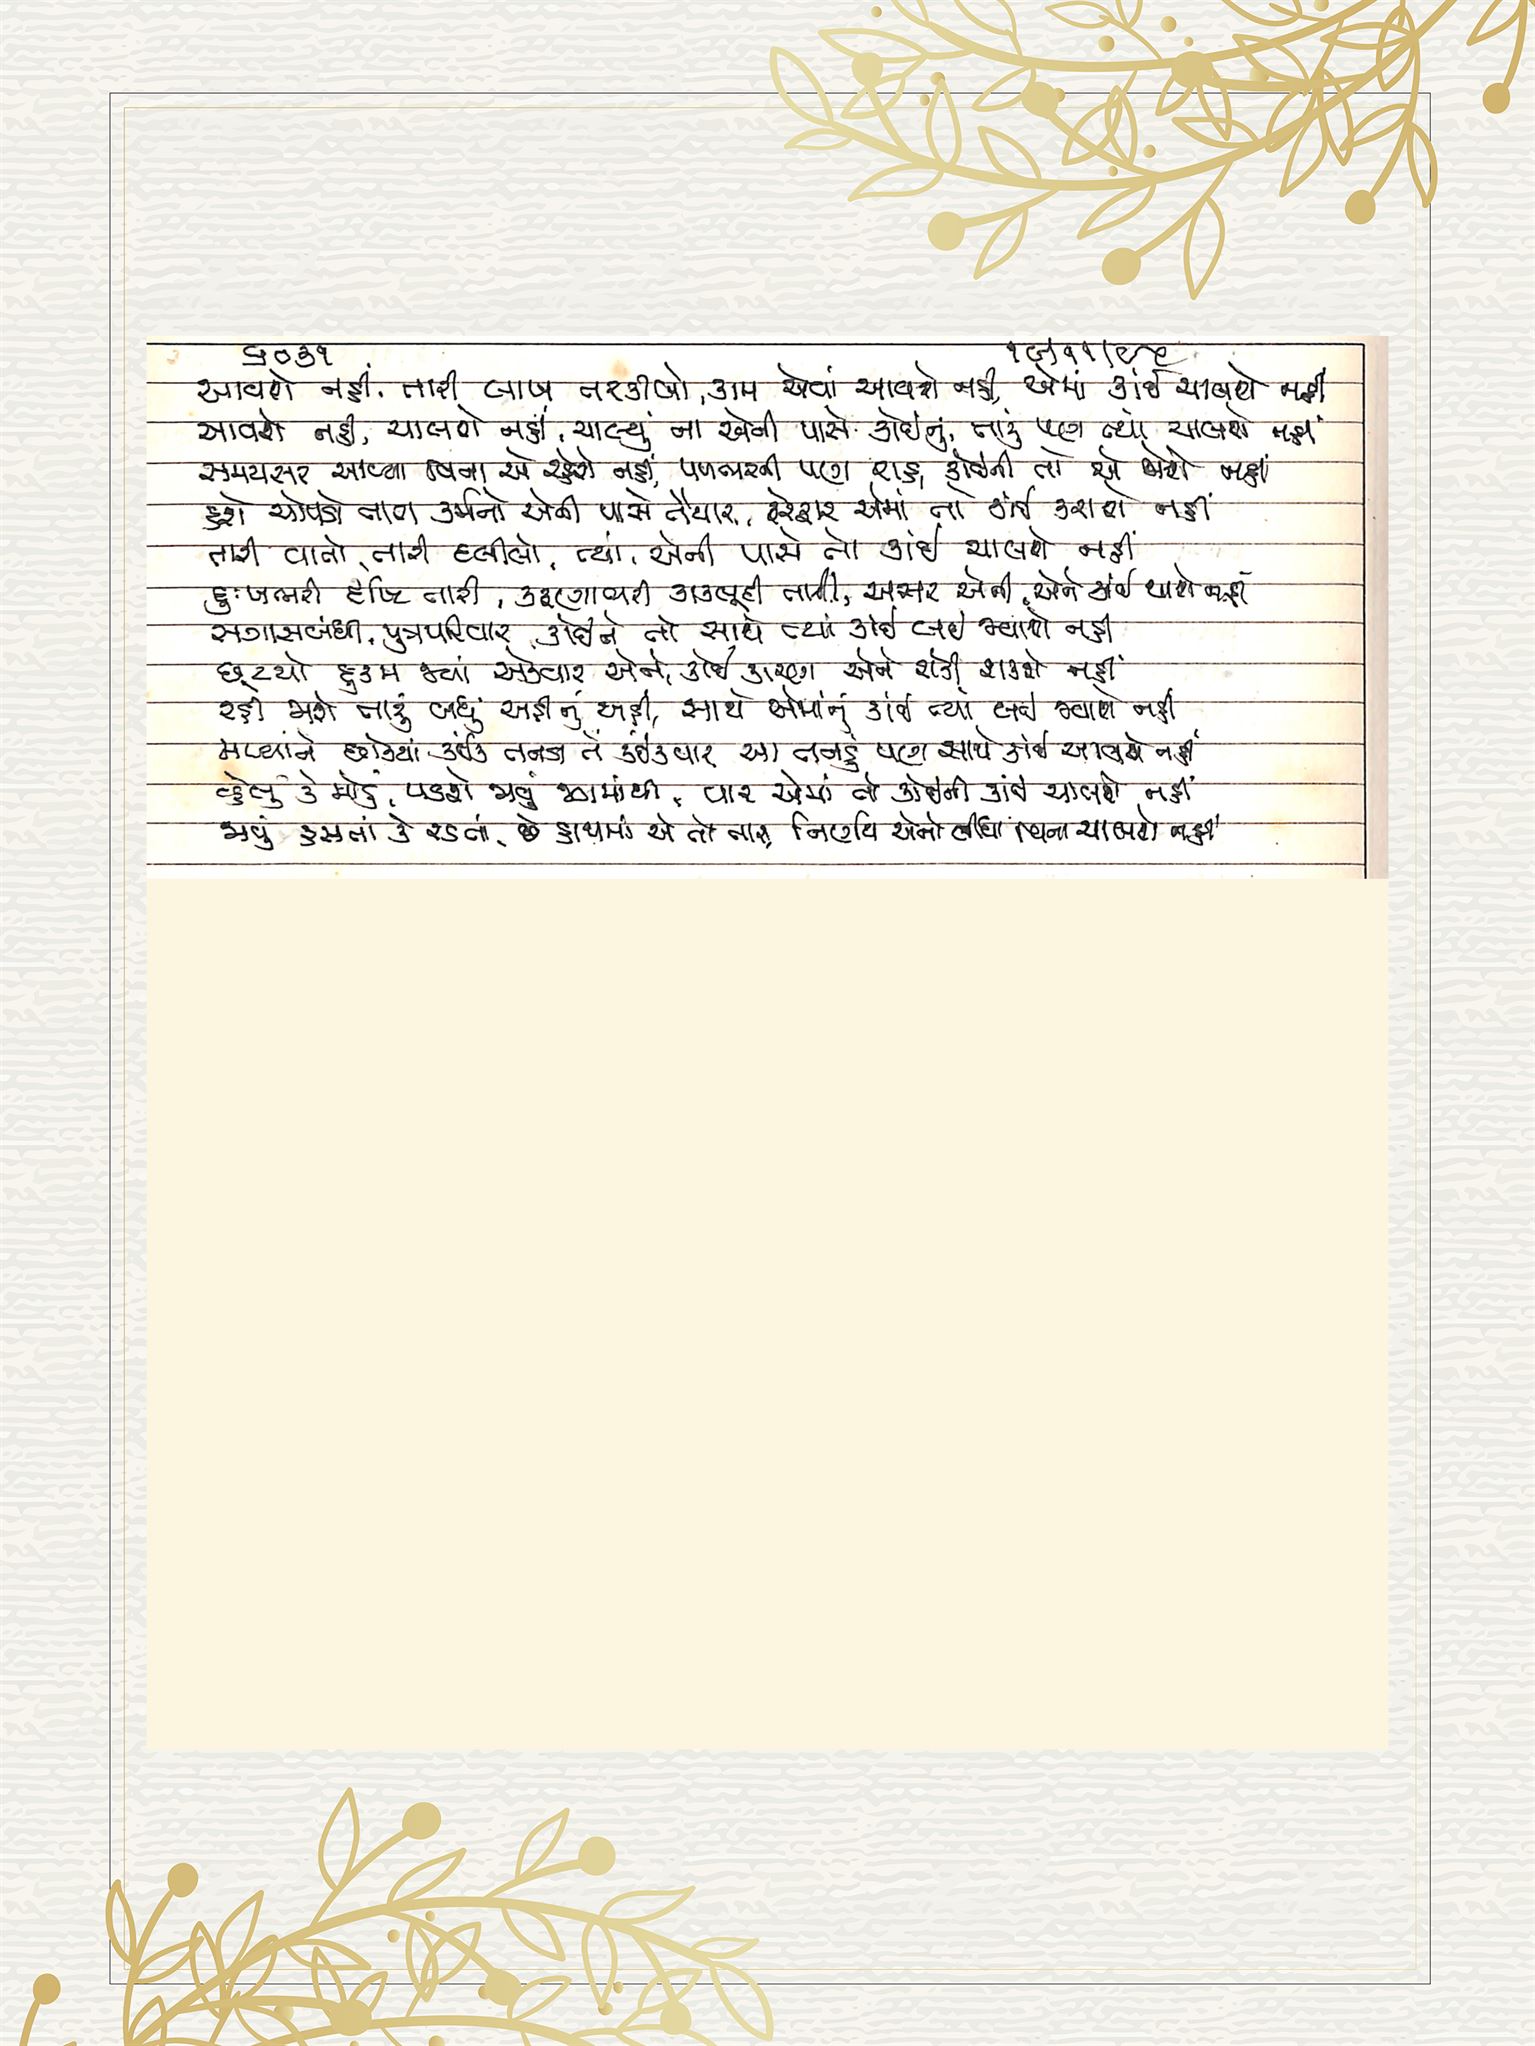 ૬૦૩૧
આવશે નહીં, તારી લાખ તરકીબો, કામ એવાં આવશે નહીં, એમાં કાંઈ ચાલશે નહીં
આવશે નહીં, ચાલશે નહીં, ચાલ્યું ના એની પાસે કોઈનું, તારું પણ ત્યાં ચાલશે નહીં
સમયસર આવ્યા વિના એ રહેશે નહીં, પળભરની પણ રાહ, કોઈની તો એ જોશે નહીં
હશે ચોપડો તારા કર્મનો એની પાસે તૈયાર, ફેરફાર એમાં તો કાંઈ કરાશે નહીં
તારી વાતો, તારી દલીલો, ત્યાં, એની પાસે તો કાંઈ ચાલશે નહીં
દુઃખભરી દૃષ્ટિ તારી, કરુણાભરી કાકલૂદી તારી, અસર એની, એને કાંઈ થાશે નહીં
સગાસંબંધી, પુત્રપરિવાર, કોઈને તો સાથે ત્યાં કાંઈ લઈ જવાશે નહીં
છૂટયો હુકમ જ્યાં એકવાર એને, કોઈ કારણ એને રોકી શકશે નહીં
રહી જાશે તારું બધું અહીંનું અહીં, સાથે એમાંનું કાંઈ ત્યાં લઈ જવાશે નહીં
મળ્યાંને છોડયાં કંઈક તનડાં તેં કંઈકવાર આ તનડું પણ સાથે કાંઈ આવશે નહીં
વ્હેલું કે મોડું, પડશે જાવું જગમાંથી, વાર એમાં તો કોઈની કાંઈ ચાલશે નહીં
જાવું હસતાં કે રડતાં, છે હાથમાં એ તો તારા, નિર્ણય એનો લીધા વિના ચાલશે નહીં